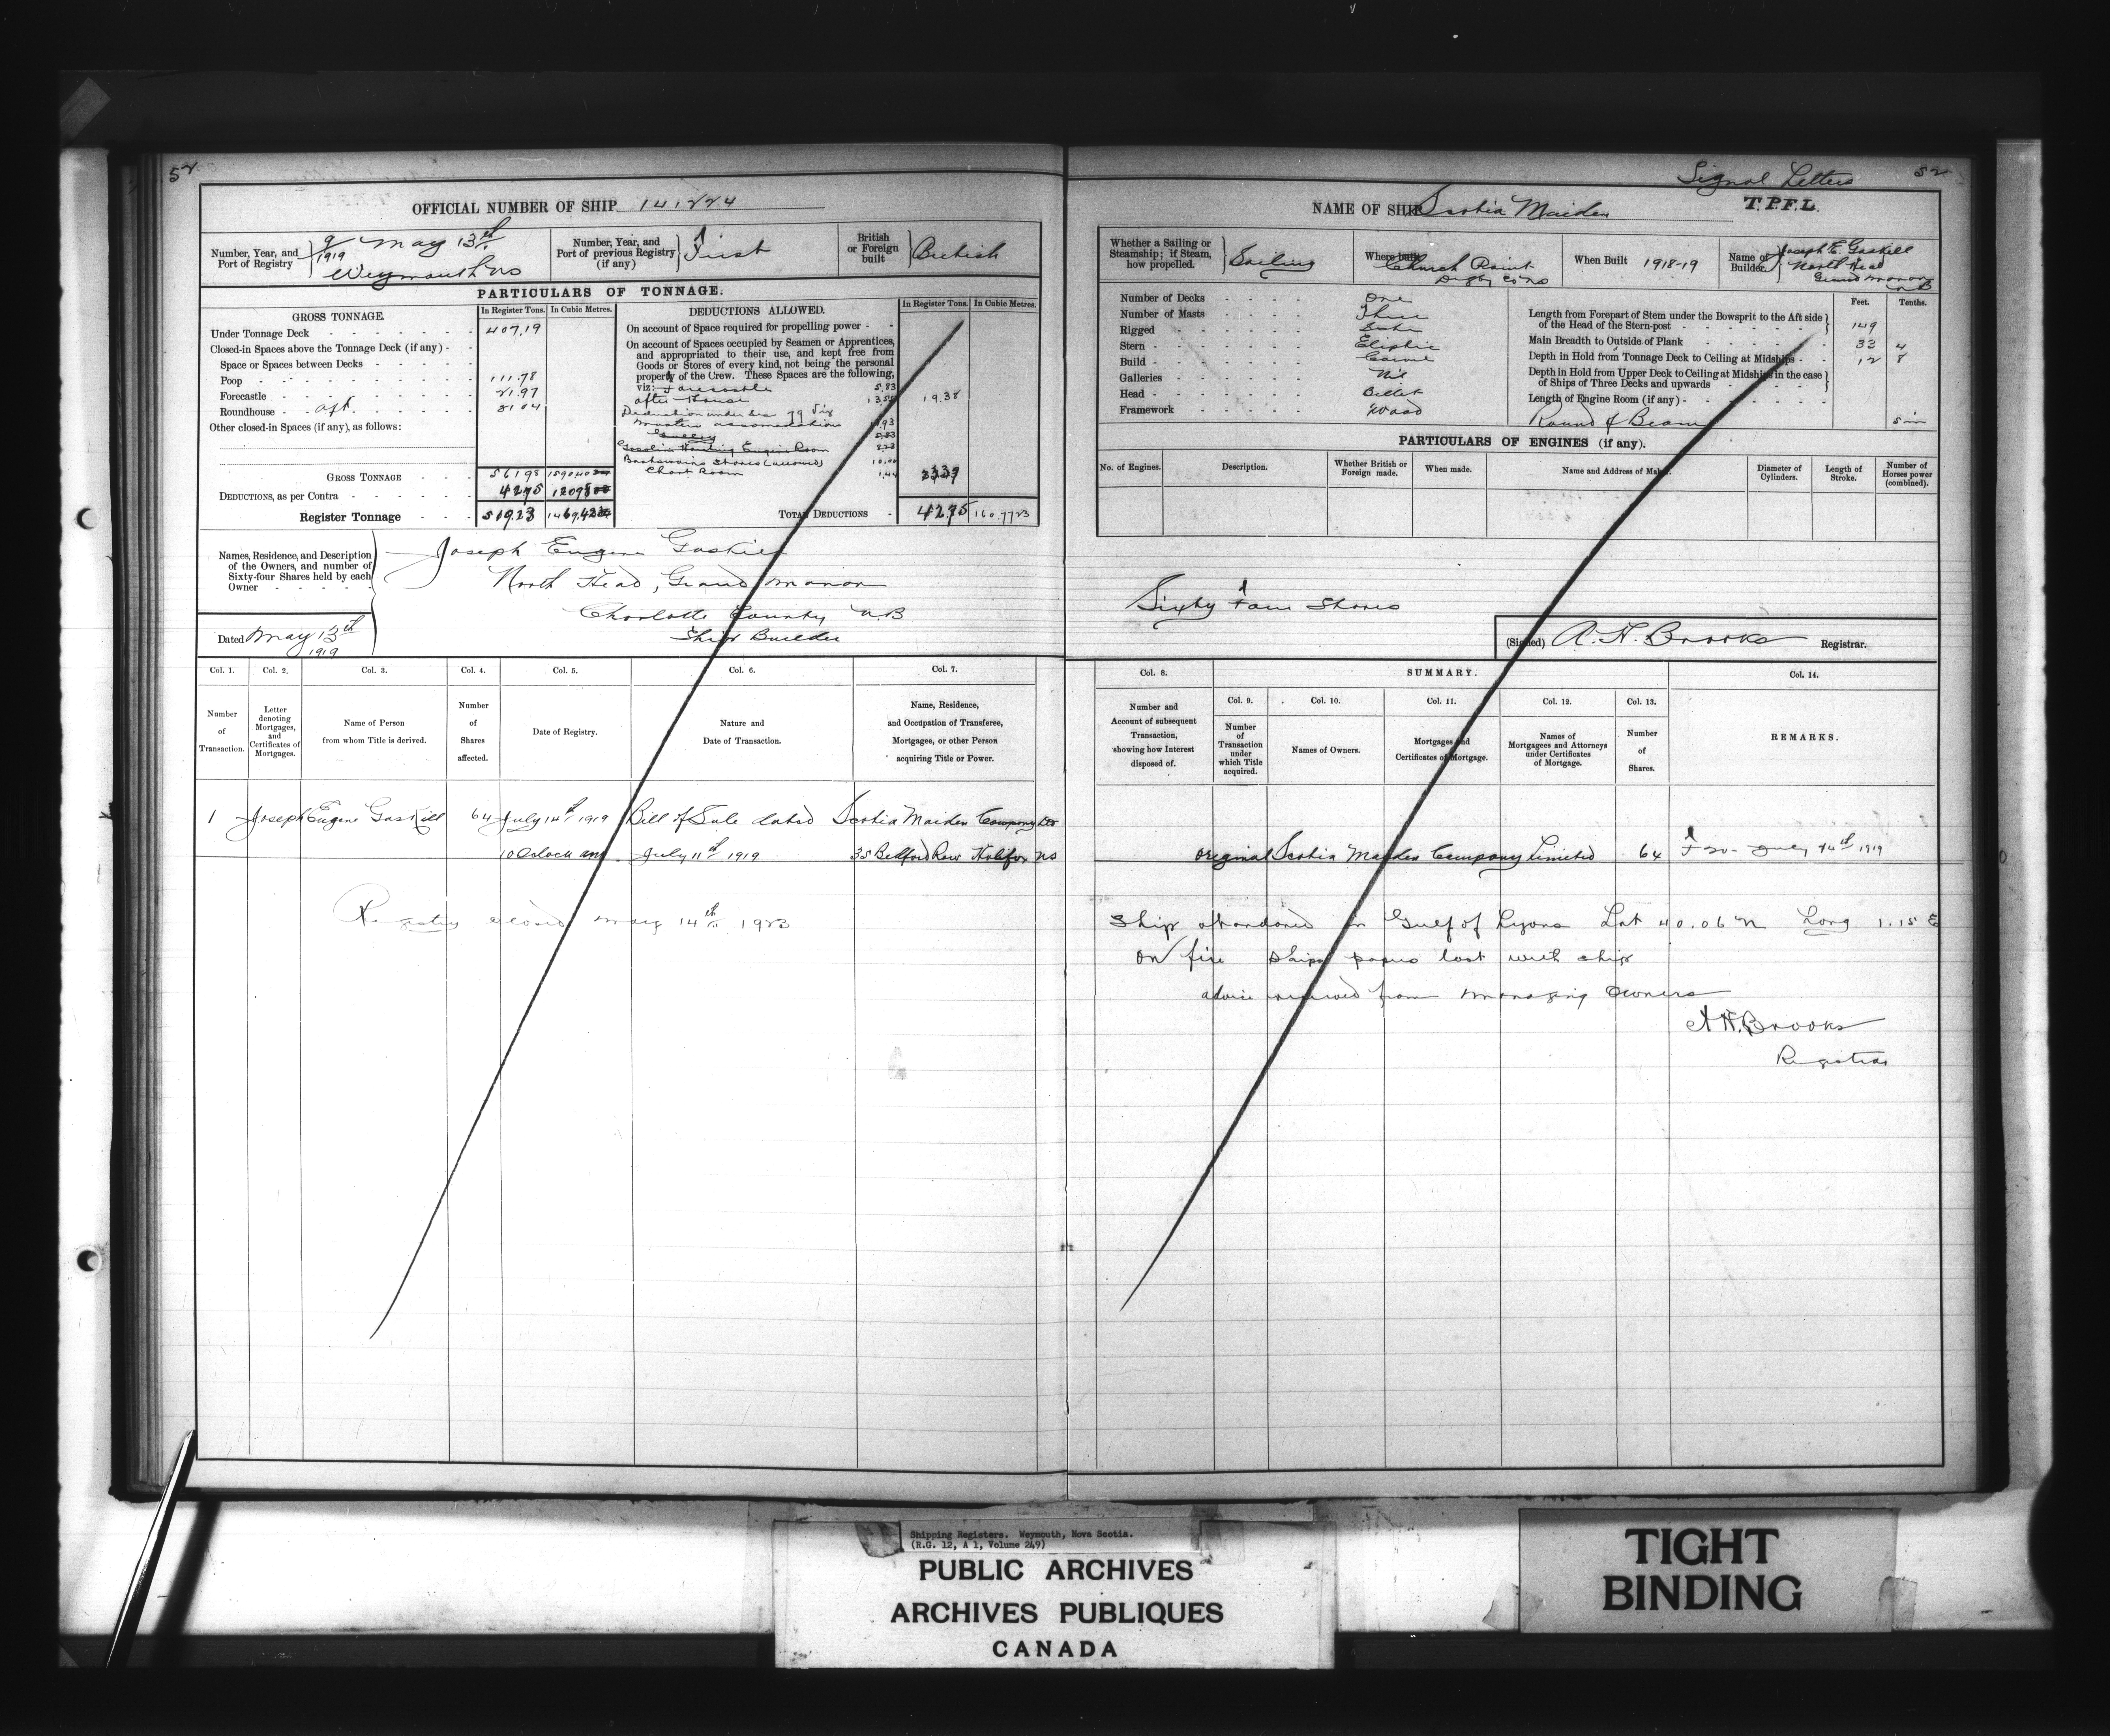 52
OFFICIAL NUMBER OF SHIP 141224
Number, Year, and Port of Registry
9/1919 May 13th
Weymouth NS
Number, Year, and Port of previous Registry (if any)
First
British or Foreign built
British
PARTICULARS OF TONNAGE.
GROSS TONNAGE.
In Register Tons.
In Cubic Metres.
Under Tonnage Deck 407.19
Closed-in Spaces above the Tonnage Deck (if any)
Space or Spaces between Decks
Poop 111.78
Forecastle 21.97
Roundhouse aft 21.04
Other closed-in Spaces (if any), as follows:
GROSS TONNAGE 561.98
DEDUCTIONS, as per Contra 42.75
Register Tonnage 519.23
DEDUCTIONS ALLOWED.
In Register Tons.
In Cubic Metres.
On account of Space required for propelling power
On account of Spaces occupied by Seamen or Apprentices,
and appropriated to their use, and kept free from
Goods or Stores of every kind, not being the personal
property of the Crew. These Spaces are the following,
viz: Forecastle 5.83
after House 13.55 19.38
Deduction under Sec 79 Viz
Masters accomodations
Boatswains Stores 10.00
Chart Room 1.44
TOTAL DEDUCTIONS 42.75 160.7723
Names, Residence, and Description
of the Owners, and number of
Sixty-four Shares held by each
Owner
Joseph Eugene Gaskill
North Head, Grand Manan
Charlotte County NB
Ship Builder
Dated May 13th 1919
Col. 1. Col. 2. Col. 3. Col. 4. Col. 5. Col. 6. Col. 7.
Number of Transaction.
Letter denoting Mortgages, and Certificates of Mortgages.
Name of Person from whom Title is derived.
Number of Shares affected.
Date of Registry.
Nature and Date of Transaction.
Name, Residence, and Occupation of Transferee, Mortgagee, or other Person acquiring Title or Power.
1 Joseph Eugene Gaskill 64 July 14th 1919 Bill of Sale dated Scotia Maiden Company Ltd
10 Oclock am July 11th 1919 35 Bedford Row Halifax NS
Registry closed May 14th 1923
Signal Letters 52
NAME OF SHIP Scotia Maiden T.P.F.L.
Whether a Sailing or Steamship; if Steam, how propelled.
Sailing
Where built
Church Point
Digby Co NS
When Built 1918-19
Name of Builder
Joseph E. Gaskill
North Head
Grand Manan
NB
Number of Decks One
Number of Masts Three
Rigged
Stern Eliptic
Build Carvel
Galleries Nil
Head Billet
Framework Wood
Feet. Tenths.
Length from Forepart of Stem under the Bowsprit to the Aft side
of the Head of the Stern-post 149
Main Breadth to Outside of Plank 33 4
Depth in Hold from Tonnage Deck to Ceiling at Midships 12 8
Depth in Hold from Upper Deck to Ceiling at Midships in the case
of Ships of Three Decks and upwards
Length of Engine Room (if any)
Round of Beam
PARTICULARS OF ENGINES (if any).
No. of Engines.
Description.
Whether British or Foreign made.
When made.
Name and Address of Maker.
Diameter of Cylinders.
Length of Stroke.
Number of Horses power (combined).
Sixty Four Shares
(Signed) A. H. Brooks Registrar.
Col. 8.
SUMMARY.
Col. 9. Col. 10. Col. 11. Col. 12. Col. 13.
Col. 14.
Number and Account of subsequent Transaction, showing how Interest disposed of.
Number of Transaction under which Title acquired.
Names of Owners.
Mortgages and Certificates of Mortgage.
Names of Mortgagees and Attorneys under Certificates of Mortgage.
Number of Shares.
REMARKS.
Original Scotia Maiden Company Limited 64 July 14th 1919
Ship abandoned in Gulf of Lyons Lat 40.06 N Long 1.15 E
on fire Ships papers lost with ship
advice received from Managing Owners
A H. Brooks
Registrar
Shipping Registers. Weymouth, Nova Scotia.
(R.G. 12, A 1, Volume 249)
PUBLIC ARCHIVES
ARCHIVES PUBLIQUES
CANADA
TIGHT
BINDING